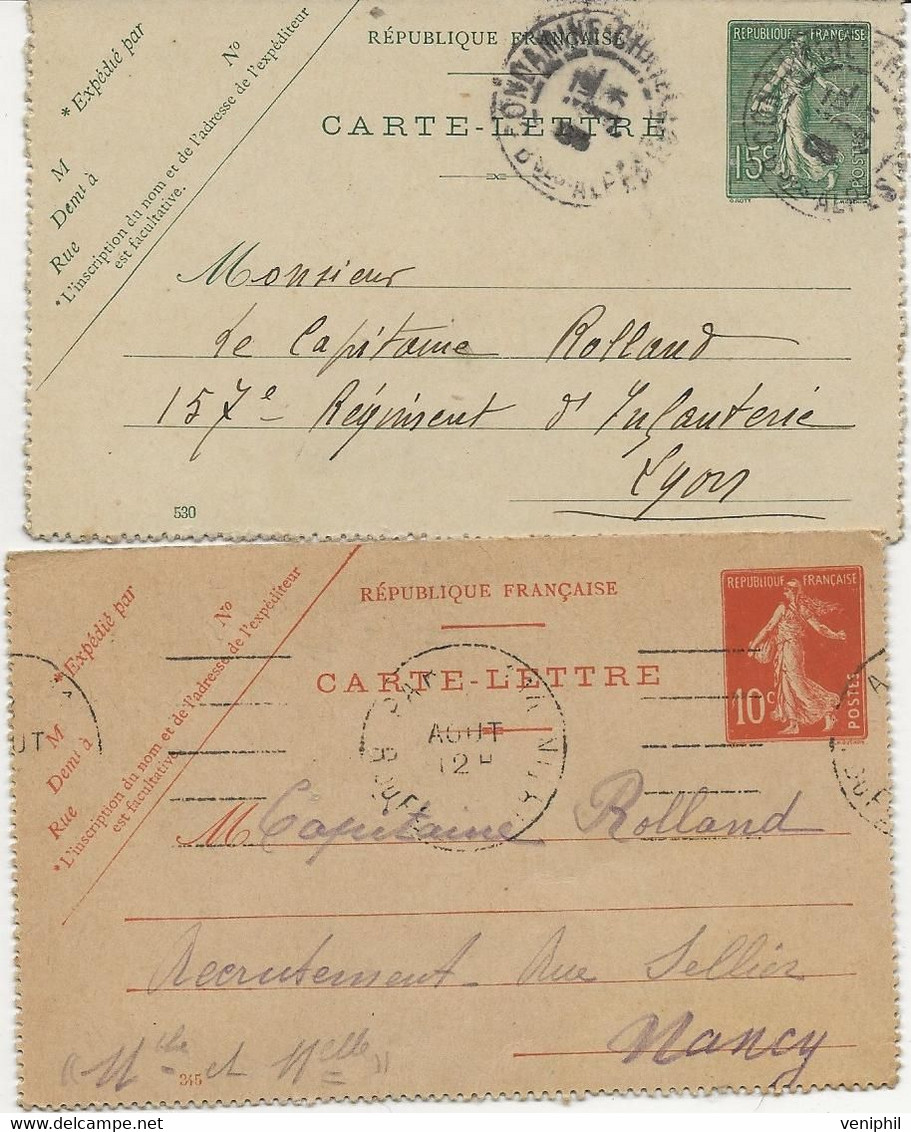 * Expédié par
M
Nº
Demt à
Rue
*L'inscription du nom et de l'adresse de l'expéditeur
est facultative.
RÉPUBLIQUE FRANÇAISE
CARTE-LETTRE
RÉPUBLIQUE FRANÇAISE
15c
POSTES
Monsieur
Le Capitaine Rolland
157e Régiment d'Infanterie
Lyon
530
* Expédié par
M
Nº
Demt à
Rue
*L'inscription du nom et de l'adresse de l'expéditeur
est facultative.
RÉPUBLIQUE FRANÇAISE
CARTE-LETTRE
REPUBLIQUE FRANÇAISE
10c
POSTES
AOUT
12H
M Capitaine Rolland
Recrutement Rue Sellier
Nancy
345
www.delcampe.net
veniphil